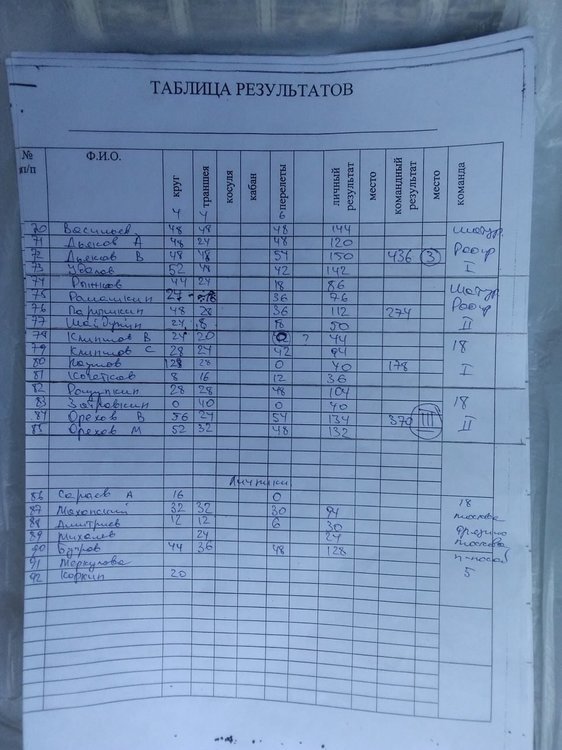 ТАБЛИЦА РЕЗУЛЬТАТОВ
№ п/п Ф.И.О. круг траншея косуля кабан перелеты личный результат место командный результат место команда
4 4 6
70 Васильев 48 48 48 144 Шатур.
71 Дьяков А 48 24 48 120 Роор
72 Дьяков В 48 48 54 150 436 3 I
73 52 48 42 142
74 44 24 18 86 Шатур.
75 Ромашкин 24 36 76 Роор
76 48 28 36 112 274 II
77 24 8 18 50
78 Климов В 24 20 0 ? 44 18
79 Климов С 28 24 42 94
80 Козлов 28 0 40 178 I
81 8 16 12 36
82 28 28 48 104 18
83 0 40 0 40 II
84 Орехов В 56 24 54 134 370 III
85 Орехов М 52 32 48 132
Личники
86 Сараев А 16 0 18
87 32 32 30 94 Москва
88 Дмитриев 12 12 6 30 Фрязино
89 Михалев 24 24 Москва
90 Бугров 44 36 48 128
91 Меркулова
92 Коркин 20 5